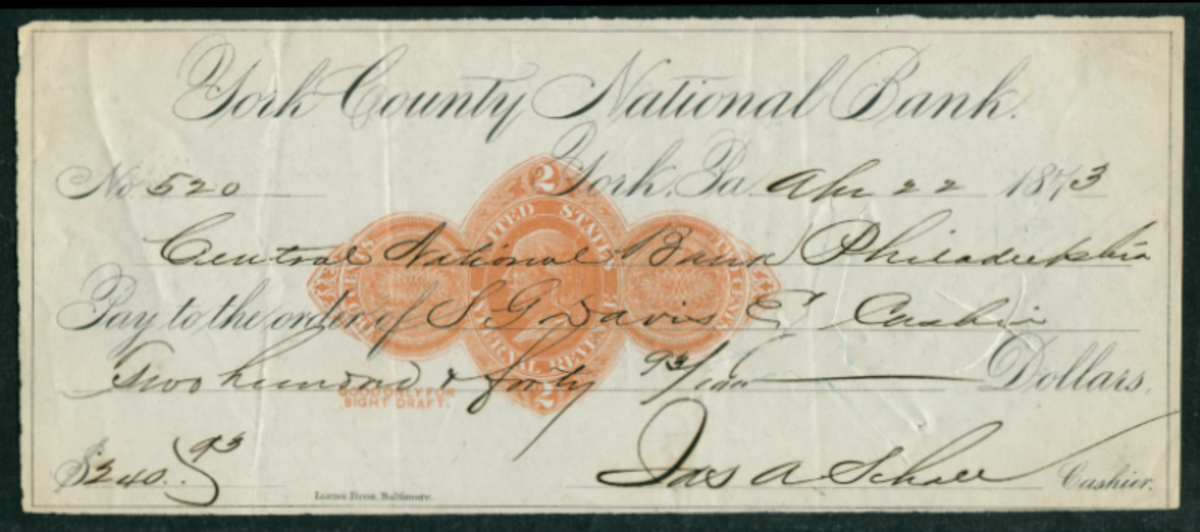 York County National Bank.
No. 520 York, Pa. Apr 22 1873
Central National Bank Philadelphia
Pay to the order of S. G. Davis Cashier
Two hundred & forty 93/100 Dollars.
GOOD ONLY FOR
SIGHT DRAFT.
$240.93
Jas A Schall Cashier.
Lucas Bros. Baltimore.
2
UNITED STATES
INTERNAL REVENUE
TWO CENTS
TWO CENTS
2